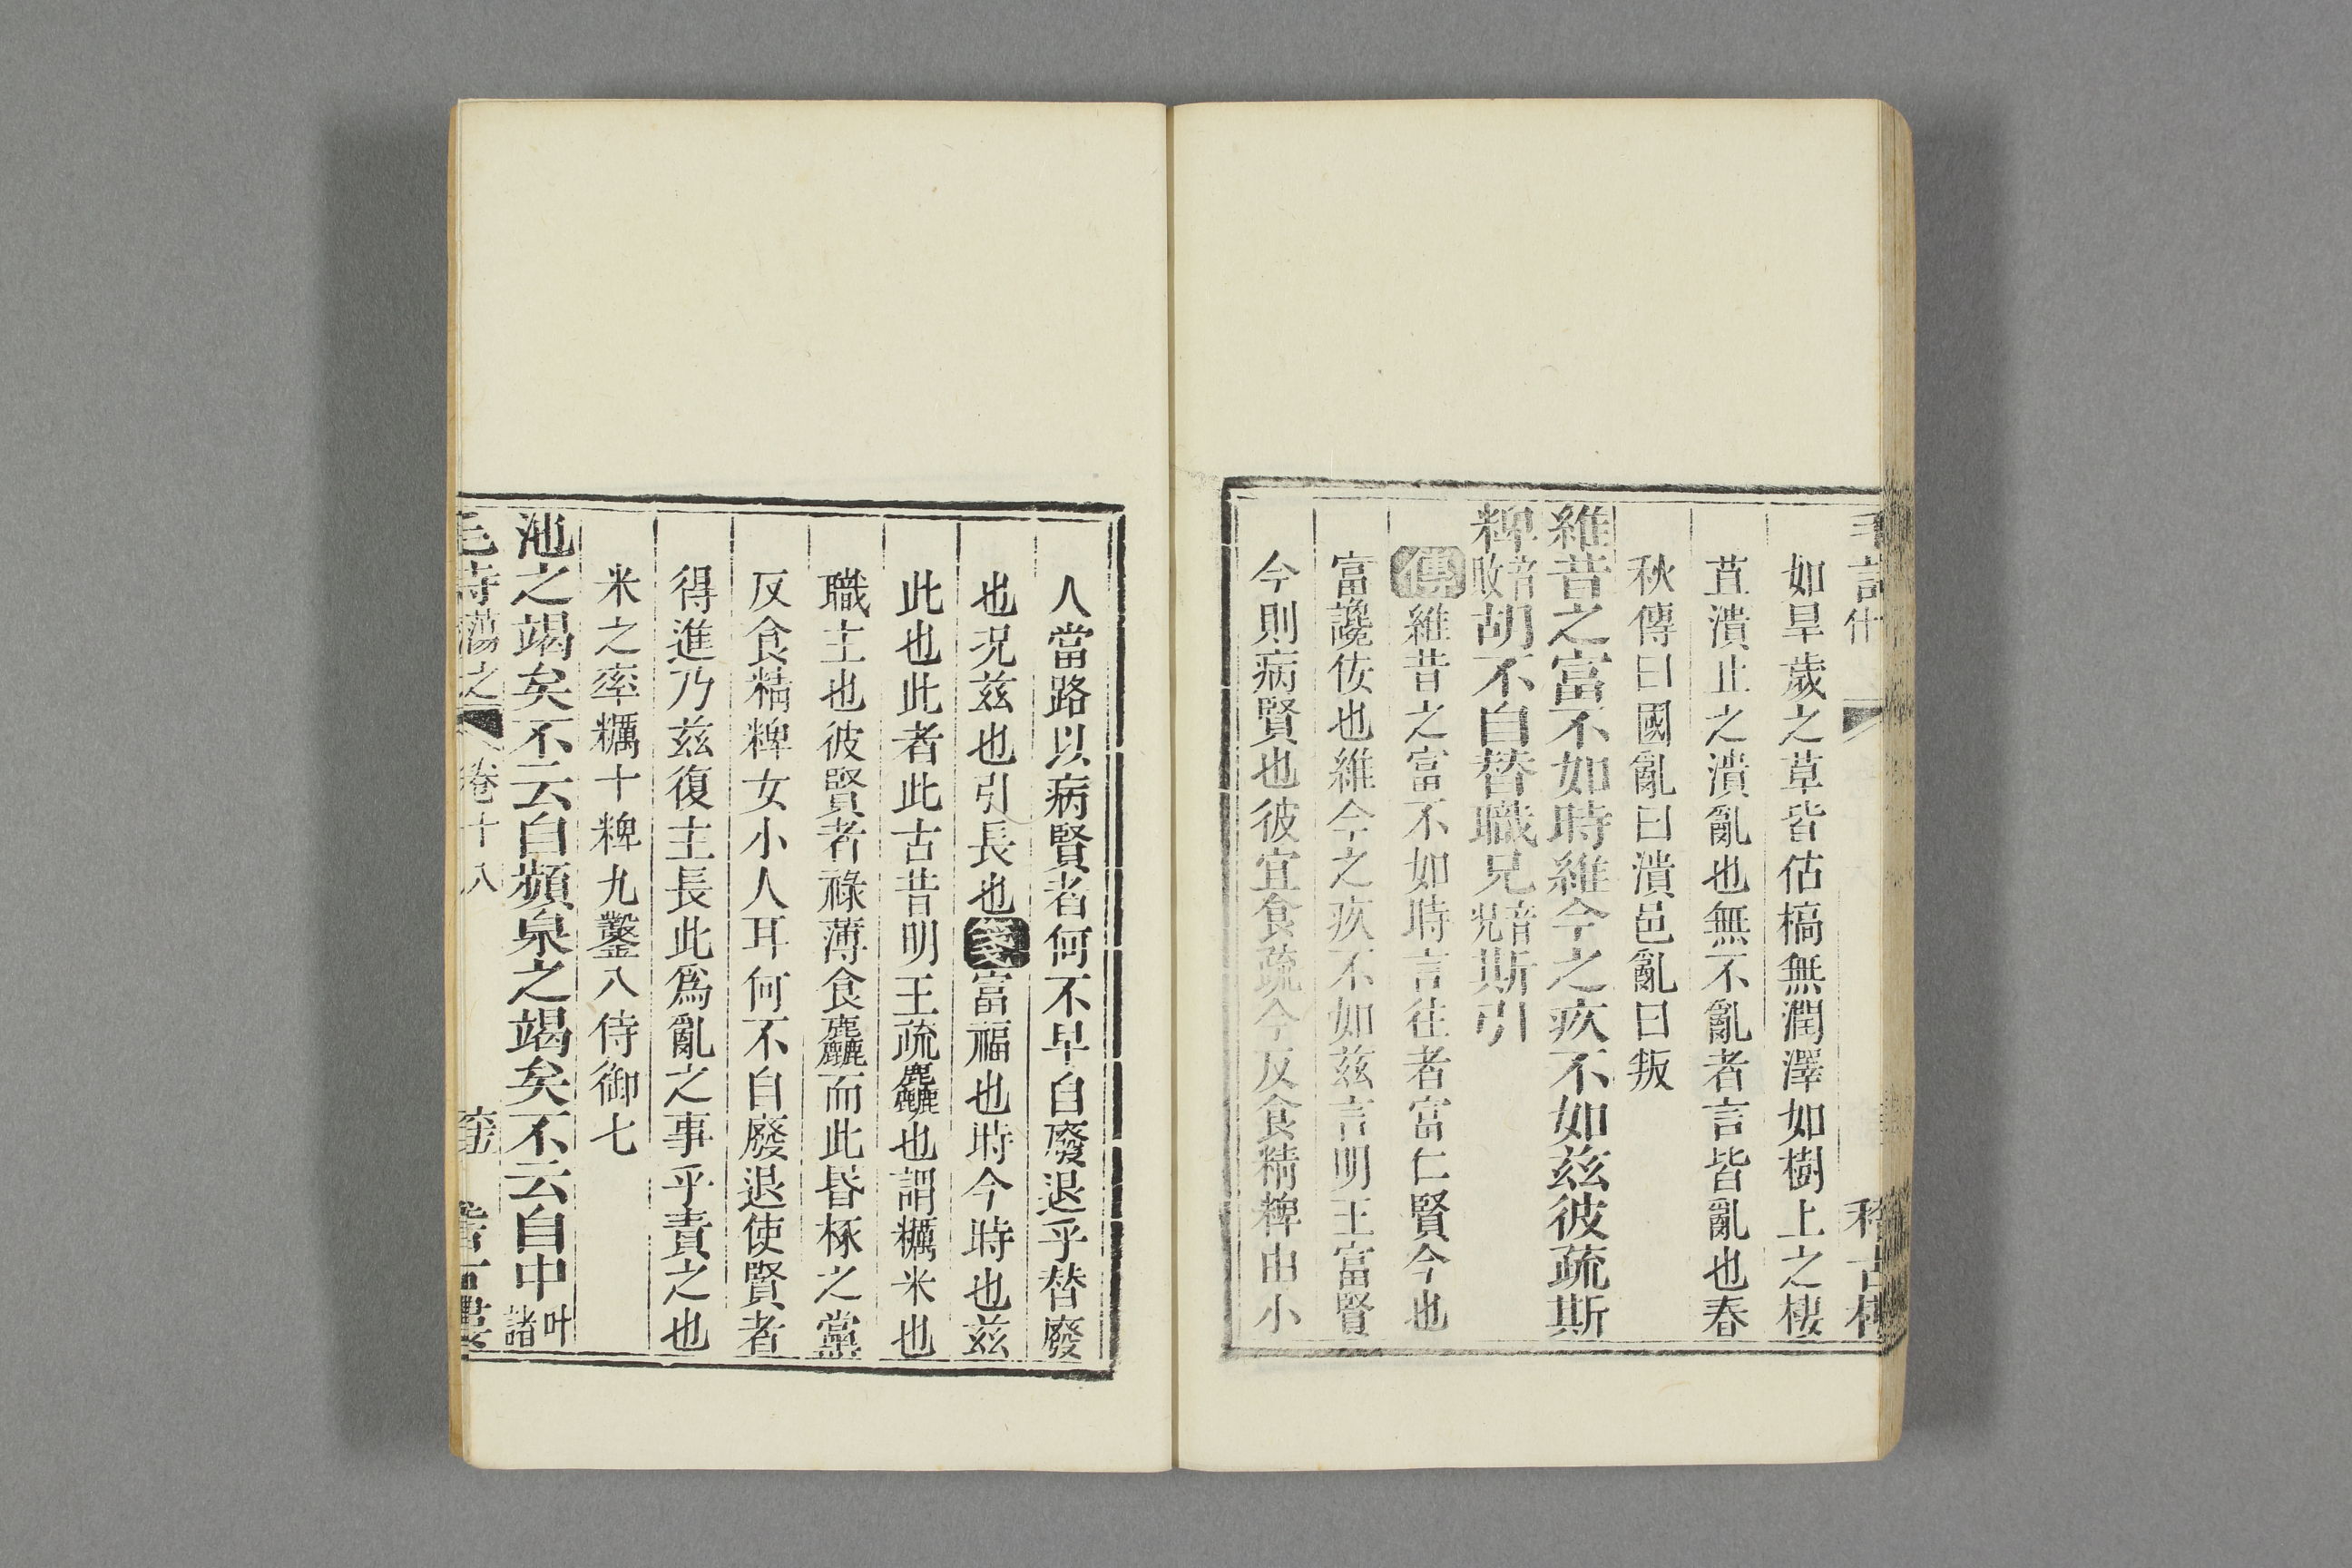 如旱歲之草皆估槁無潤澤如樹上之棲
苴潰止之潰亂也無不亂者言皆亂也春
秋傳曰國亂曰潰邑亂曰叛
維昔之富不如時維今之疚不如茲彼疏斯
粺音敗胡不自替職兄音況斯引
傳維昔之富不如時言往者富仁賢今也
富讒佞也維今之疚不如茲言明王富賢
今則病賢也彼宜食疏今反食精粺由小
人當路以病賢者何不早自廢退乎替廢
也況茲也引長也箋富福也時今時也茲
此也此者此古昔明王疏麤也謂糲米也
職主也彼賢者祿薄食麤而此昏椓之黨
反食精粺女小人耳何不自廢退使賢者
得進乃茲復主長此為亂之事乎責之也
米之率糲十粺九鑿八侍御七
池之竭矣不云自頻泉之竭矣不云自中叶諸
毛詩蕩之 卷十八